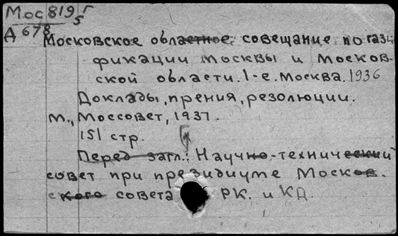 Мос 8195
5
Д 678
Московское областное совещание по гази-
фикации Москвы и Москов-
ской области. 1-е. Москва. 1936
Доклады, прения, резолюции.
М., Моссовет, 1937.
151 стр.
Перед загл.: Научно-технический
совет при президиуме Москов.
ского совета РК. и КД.